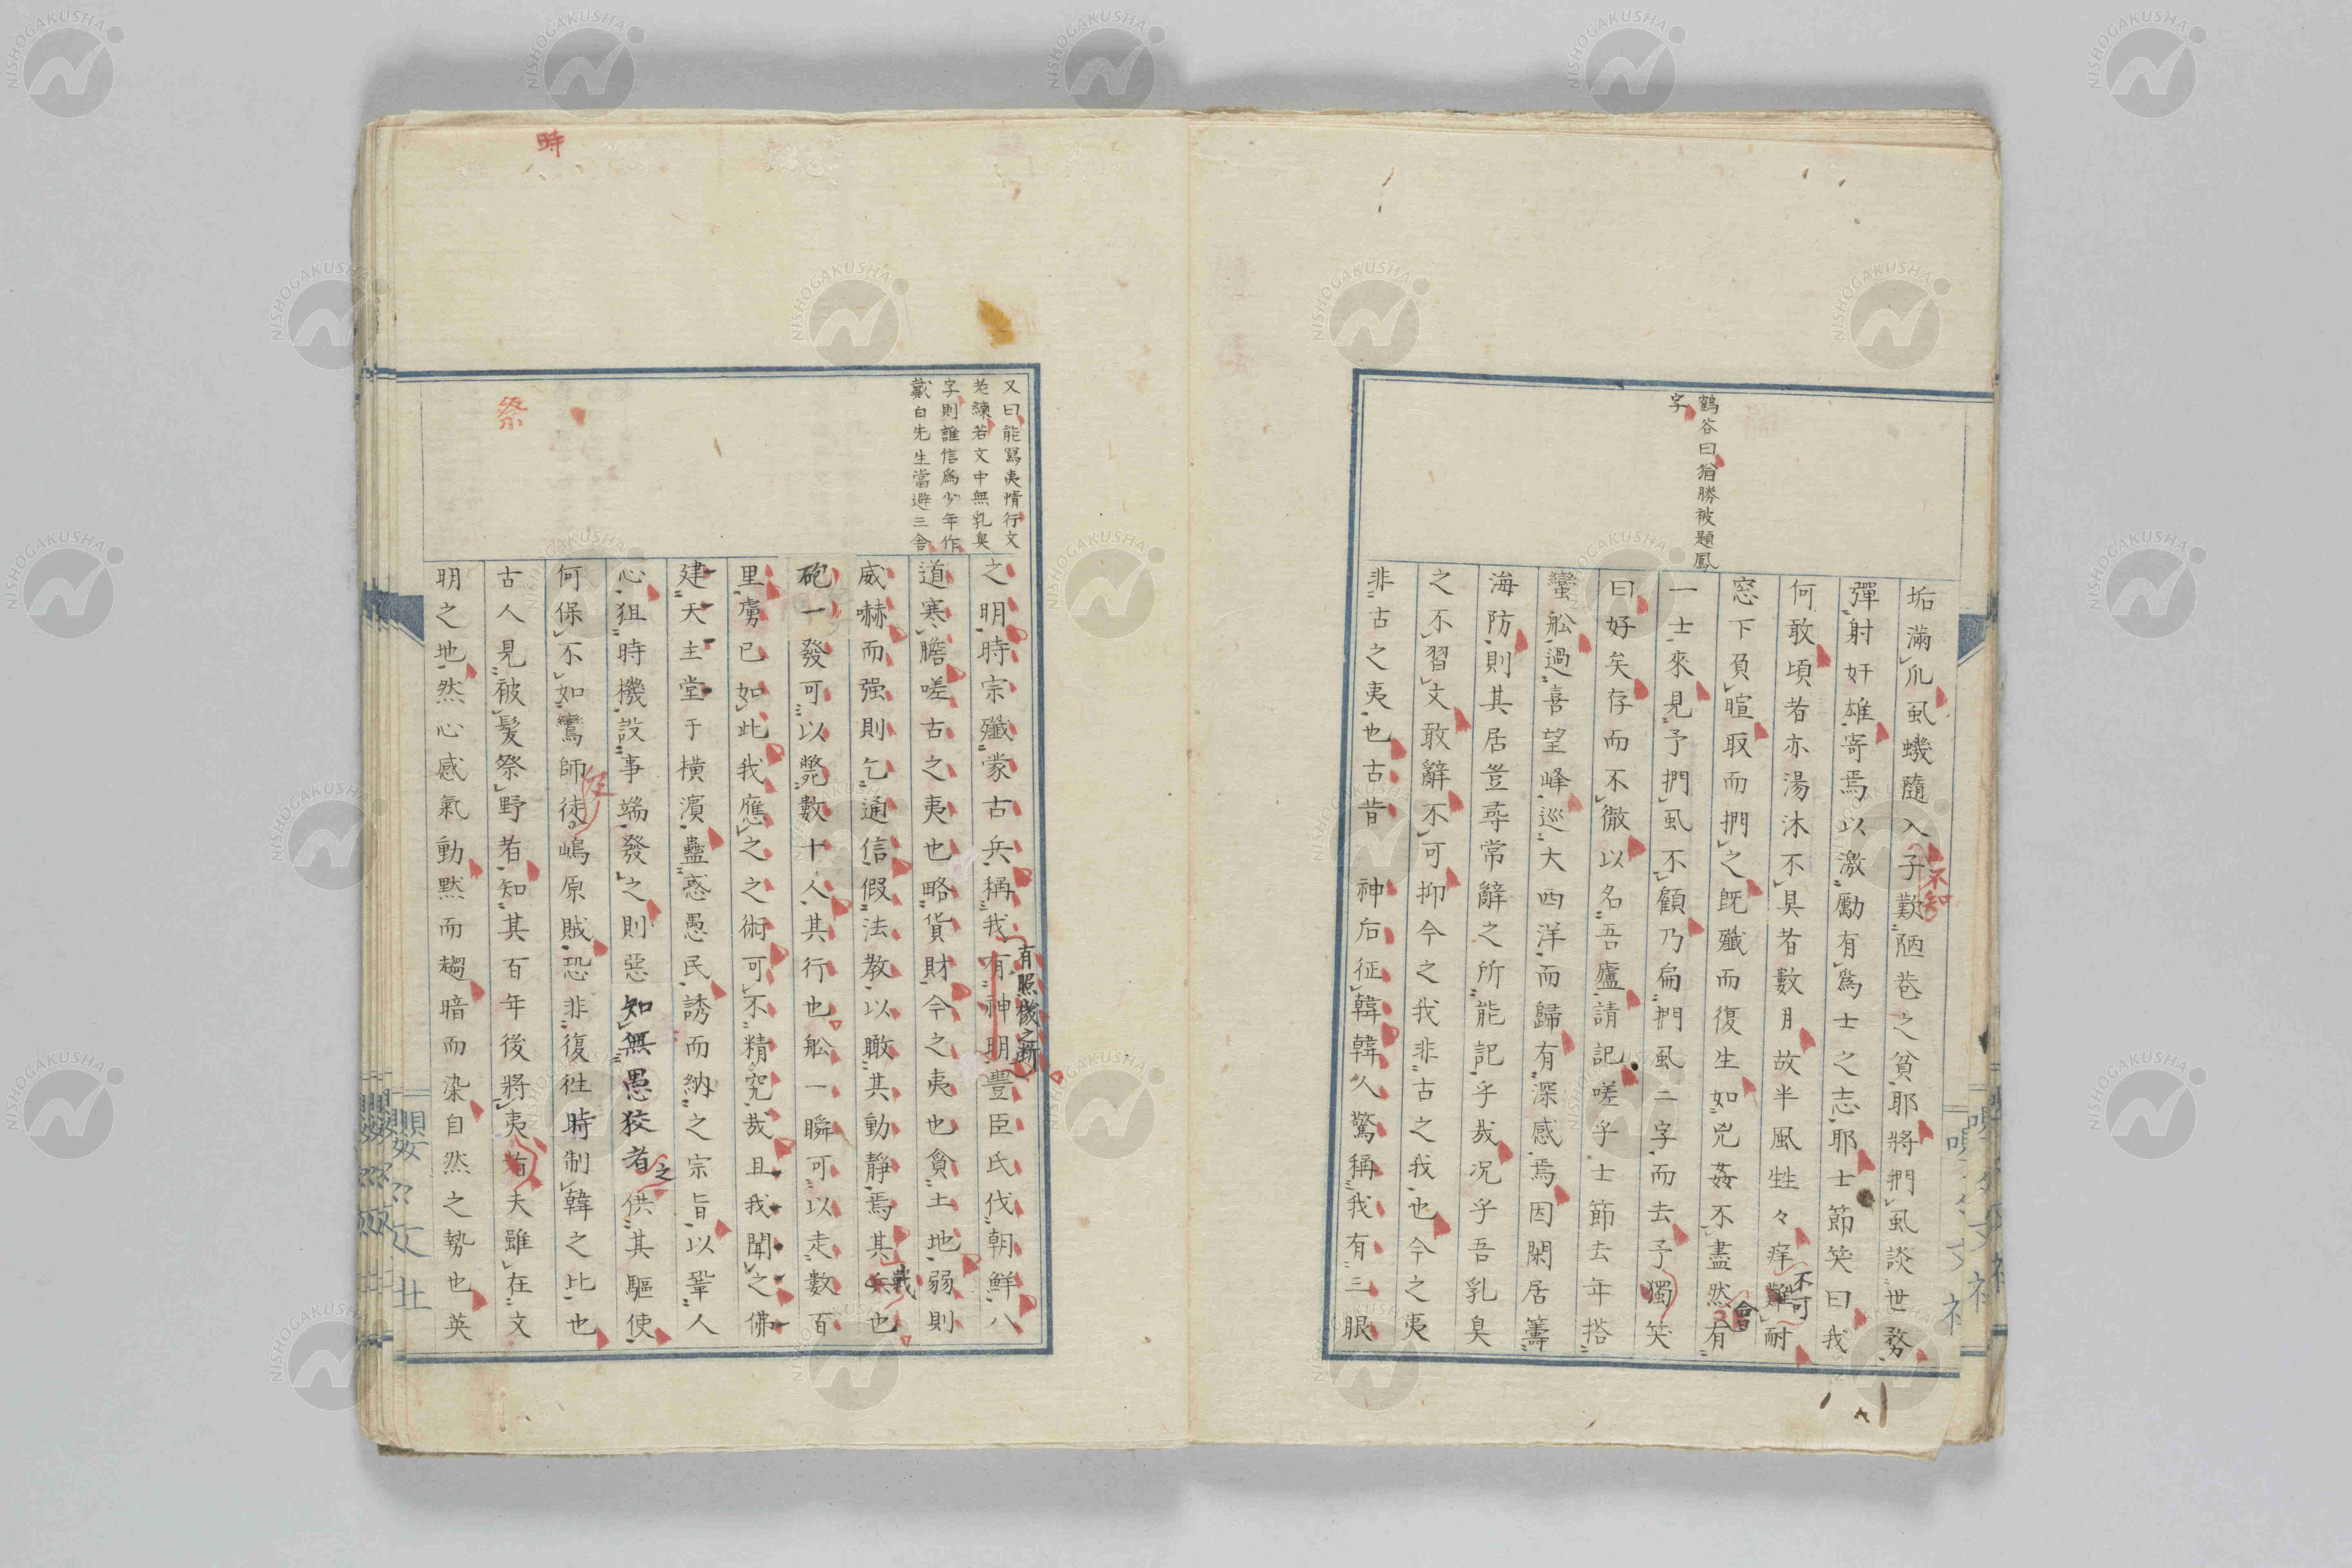 鶴谷曰猶勝被題鳳
字
垢滿爪虱蟣隨入子歎陋巷之貧耶將捫虱談世務
不知
彈射奸雄寄焉以激勵有爲士之志耶士節笑曰我
何敢頃者亦湯沐不具者數月故半風甡々痒難耐
不可
窓下負暄取而捫之既殲而復生如兇姦不盡然有
會
一士來見予捫虱不顧乃扁捫虱二字而去予獨笑
曰好矣存而不徹以名吾廬請記嗟乎士節去年搭
蠻舩過喜望峰巡大西洋而歸有深感焉因閑居籌
海防則其居豈尋常辭之所能記乎哉况乎吾乳臭
之不習文敢辭不可抑今之我非古之我也今之夷
非古之夷也古昔神后征韓韓人驚稱我有三眼
又曰能寫夷情行文
老練若文中無乳臭
字則誰信爲少年作
戴白先生當避三舎
之明時宗殲蒙古兵稱我有神明豐臣氏伐朝鮮八
有照幾之斷
道寒膽嗟古之夷也略貨財今之夷也貪土地弱則
威嚇而强則乞通信假法教以瞰其動靜焉其兵也
戰
砲一發可以斃數十人其行也舩一瞬可以走數百
里虜已如此我應之之術可不精究哉且我聞之佛
建天主堂于横濵蠱惑愚民誘而納之宗旨以鞏人
心狙時機設事端發之則惡知無愚狡者供其驅使
之
何保不如鸞師徒嶋原賊恐非復徃時制韓之比也
古人見被髮祭野者知其百年後將夷有夫雖在文
明之地然心感氣動黙而趨暗而染自然之勢也英
時
祭